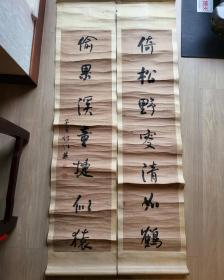 倚松野叟清如鹤
偷果溪童捷似猿